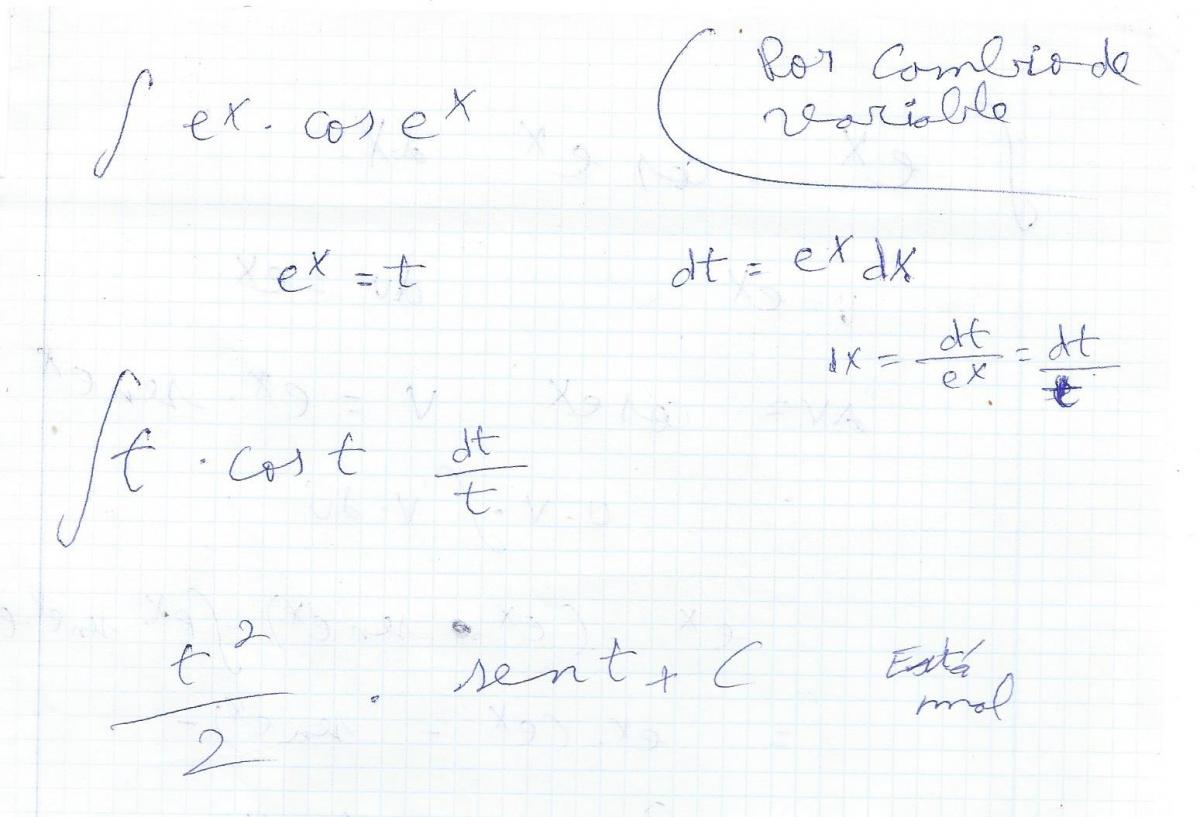 ∫ eˣ · cos eˣ
Por cambio de
variable
eˣ = t
dt = eˣ dx
dx = dt/eˣ = dt/t
∫ t · cos t dt/t
t²/2 · sen t + C
Está
mal